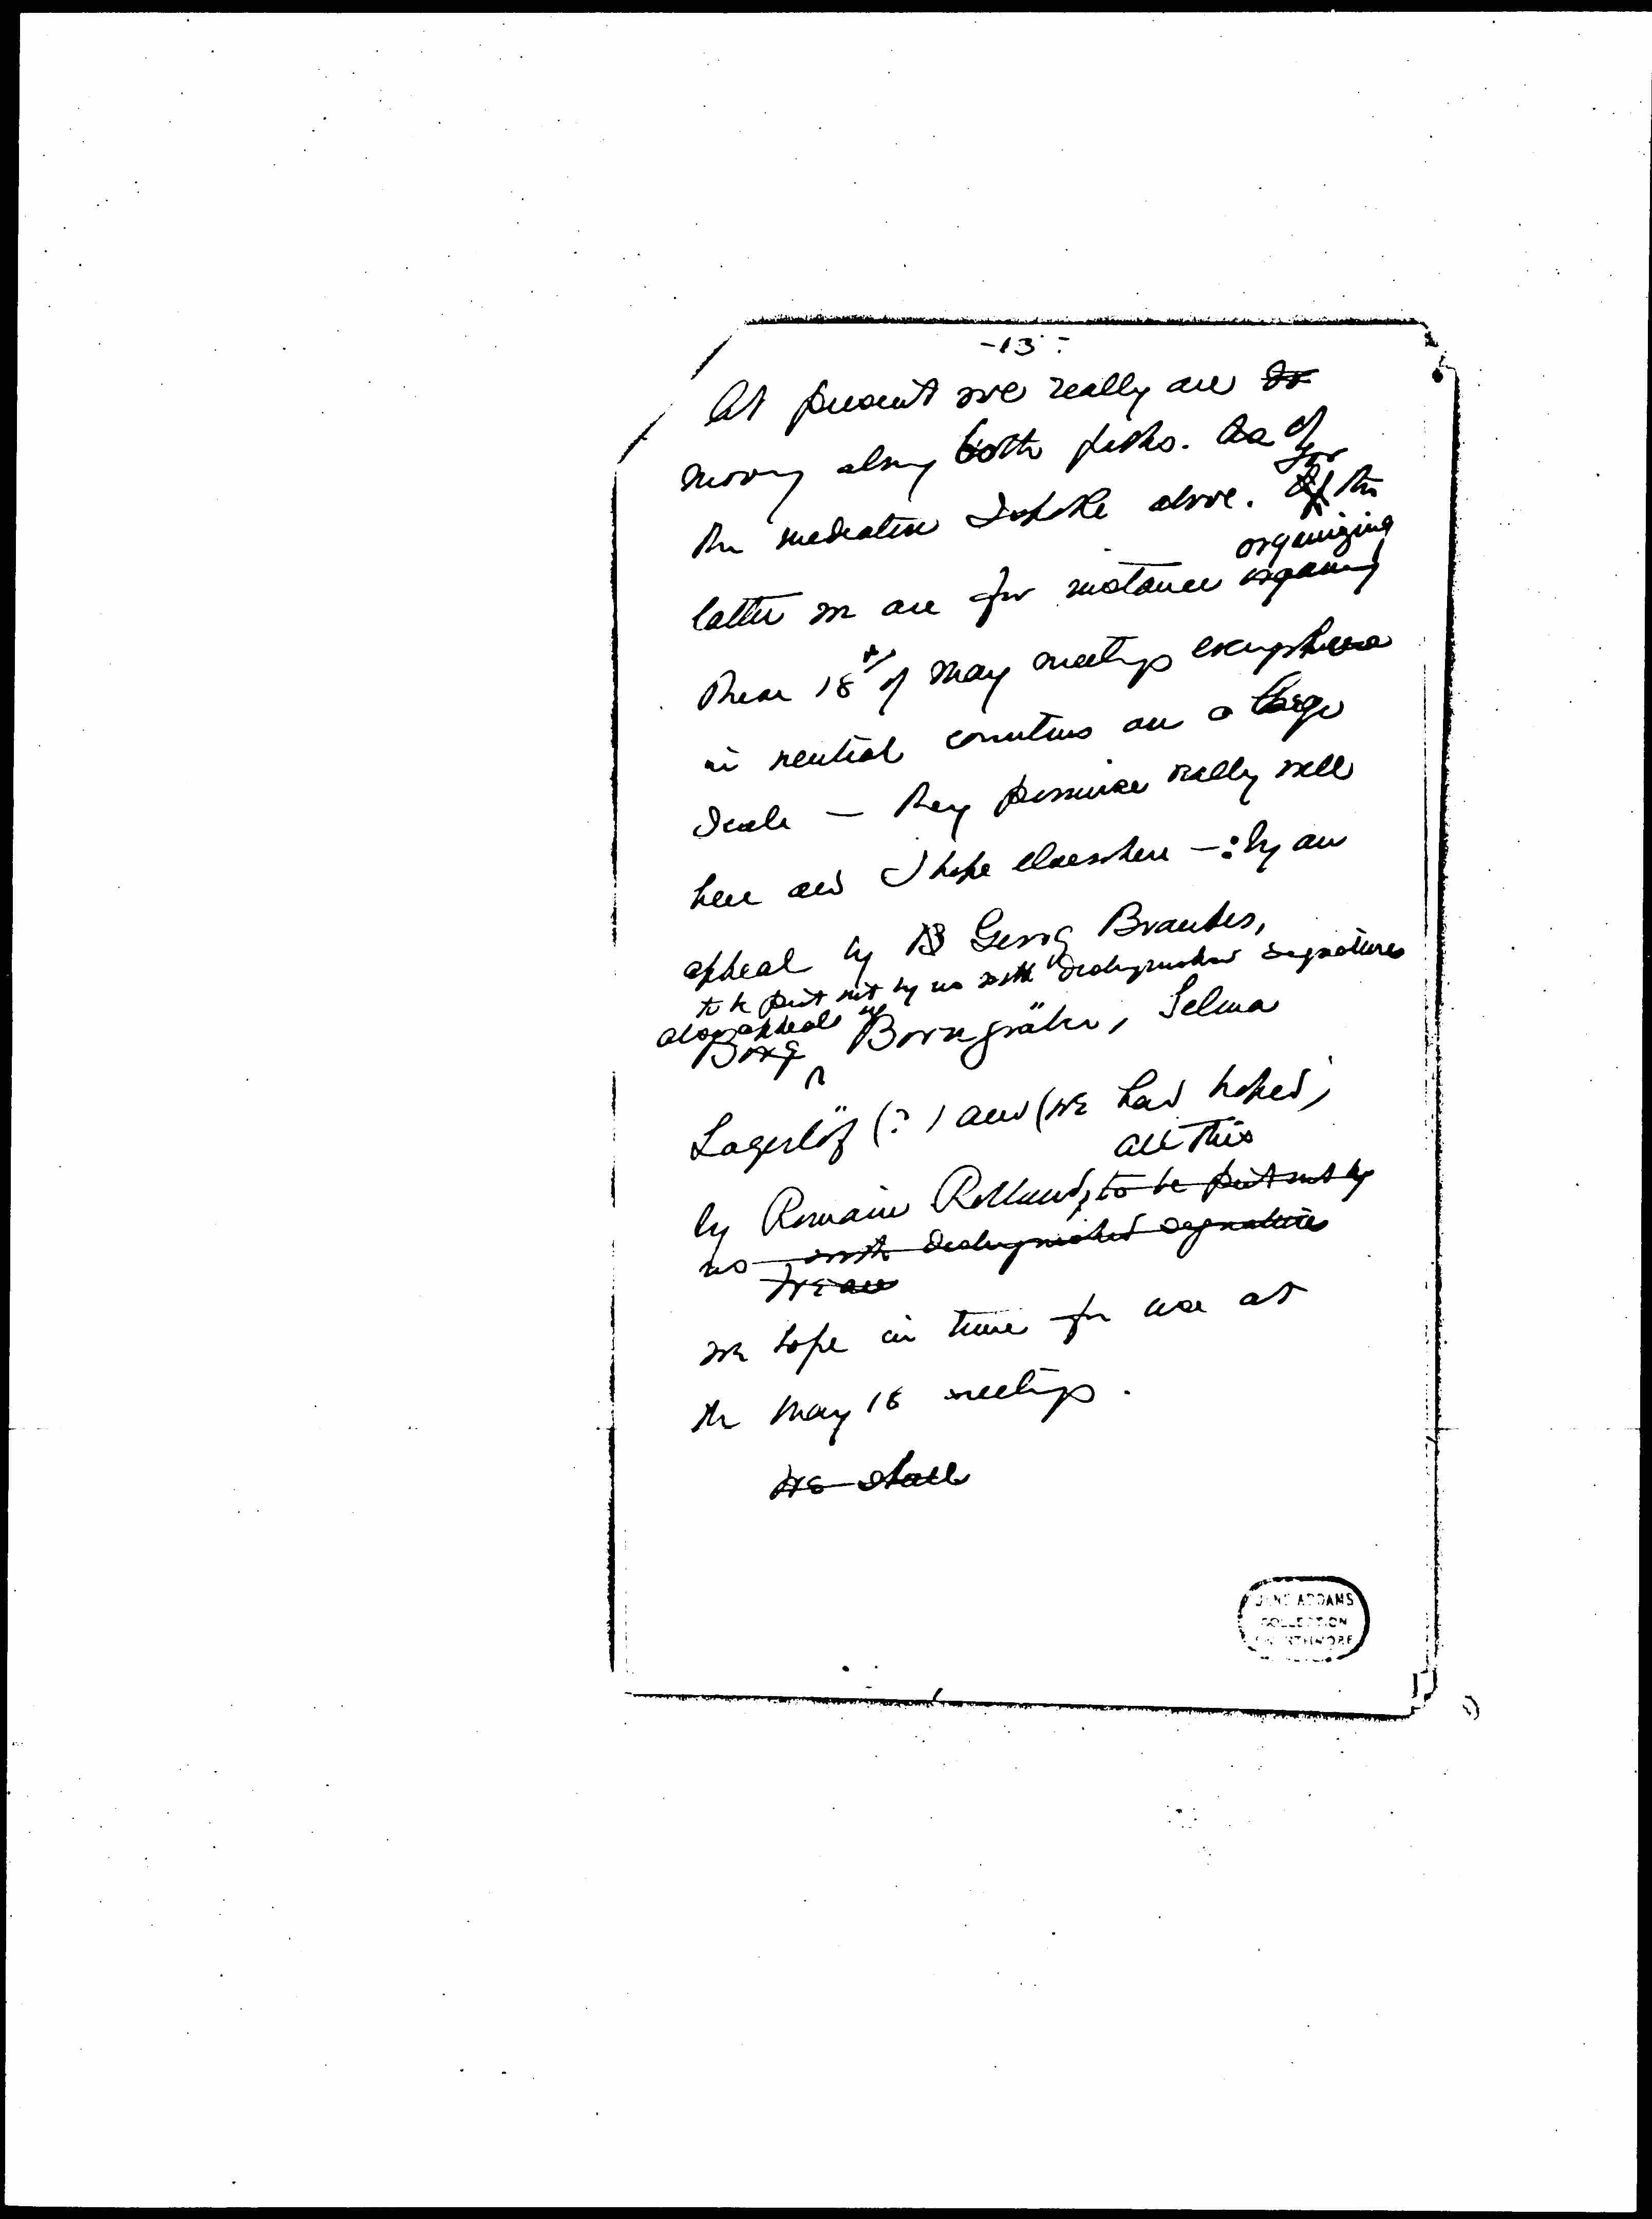 -13-
At present we really are to
moving along both paths. As of
the mediation I spoke above. Of the
for
organizing
latter we are for instance organing
these 18th of May meetings everywhere
in neutral countries on a large
scale — they promise really well
here and I hope elsewhere —: by an
appeal by B Georg Brandes,
to be put out by us with distinguished signatures
also appeals by
Borg Borngräber, Selma
Lagerlöf (?) and (we had hoped)
all this
by Romain Rolland, to be put out by
us with distinguished signatures
We are
we hope in time for use at
the May 18 meetings.
We shall
JANE ADDAMS
COLLECTION
SWARTHMORE